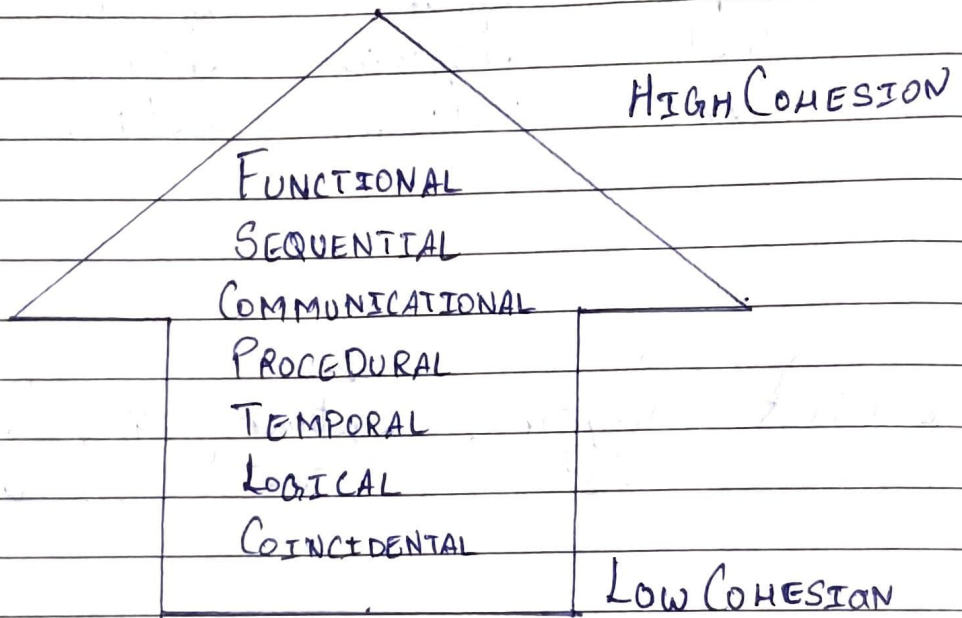 HIGH COHESION
FUNCTIONAL
SEQUENTIAL
COMMUNICATIONAL
PROCEDURAL
TEMPORAL
LOGICAL
COINCIDENTAL
LOW COHESION